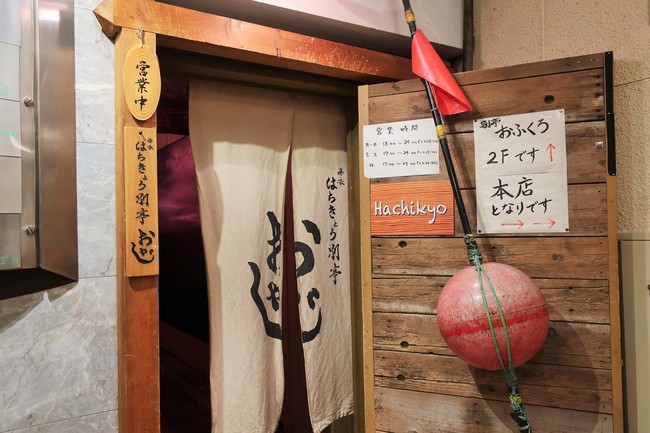 営業中
海味
はちきょう別亭
おやじ
海味
はちきょう別亭
おやじ
営業時間
Hachikyo
別亭 おふくろ
2Fです↑
本店
となりです
→ →